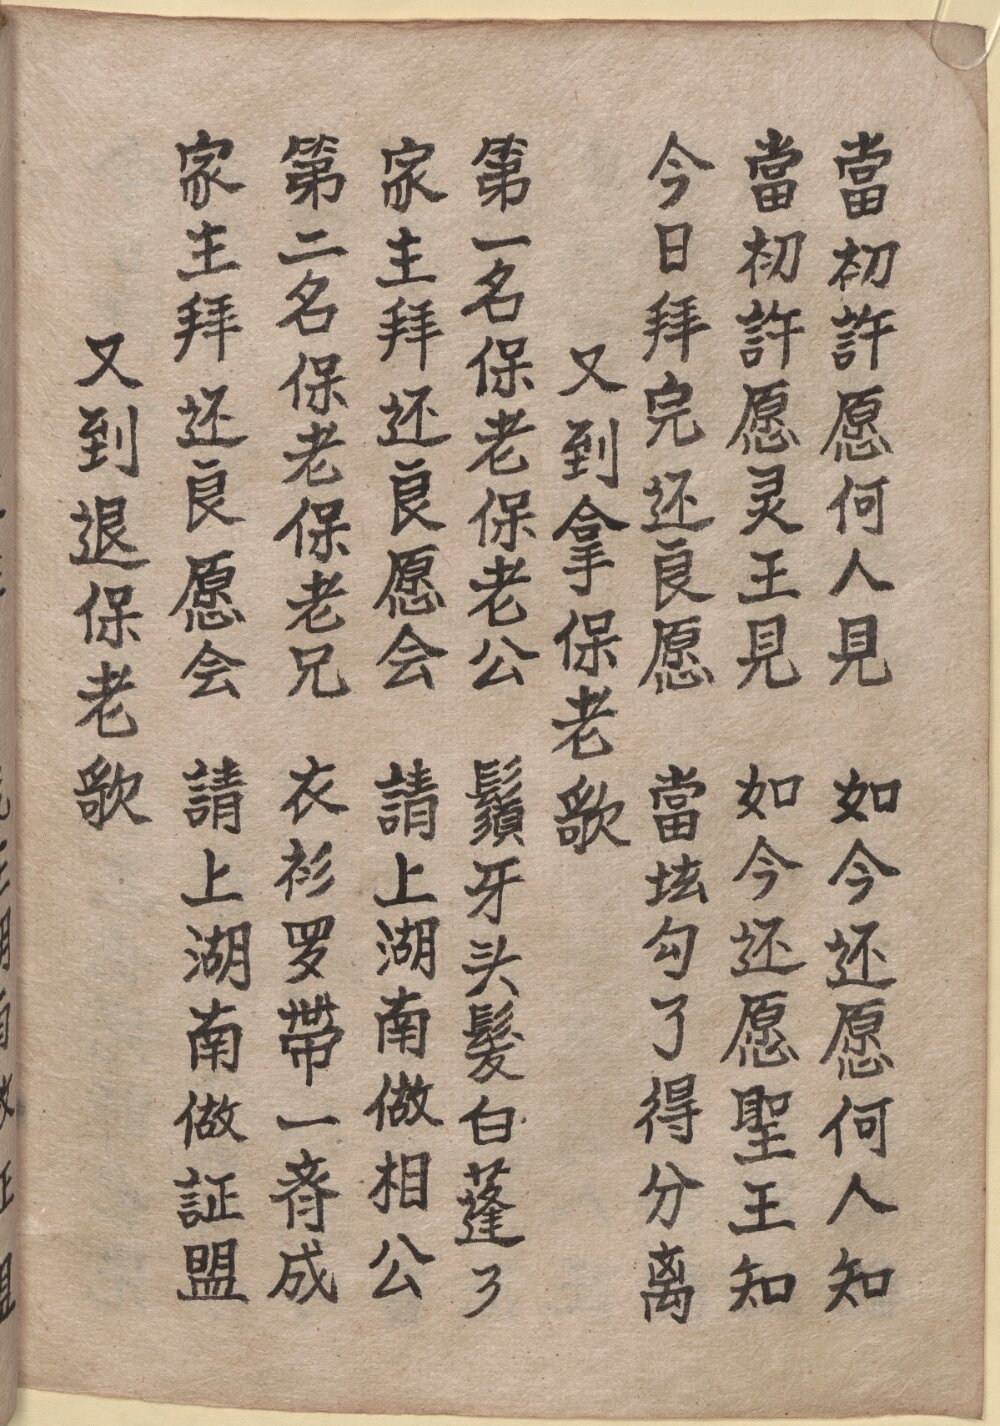 當初許愿何人見　如今还愿何人知
當初許愿灵王見　如今还愿聖王知
今日拜完还良愿　當垓勾了得分离
又到拿保老歌
第一名保老保老公　鬚牙头髮白蓬了
家主拜还良愿会　請上湖南做相公
第二名保老保老兄　衣衫罗帶一齊成
家主拜还良愿会　請上湖南做証盟
又到退保老歌